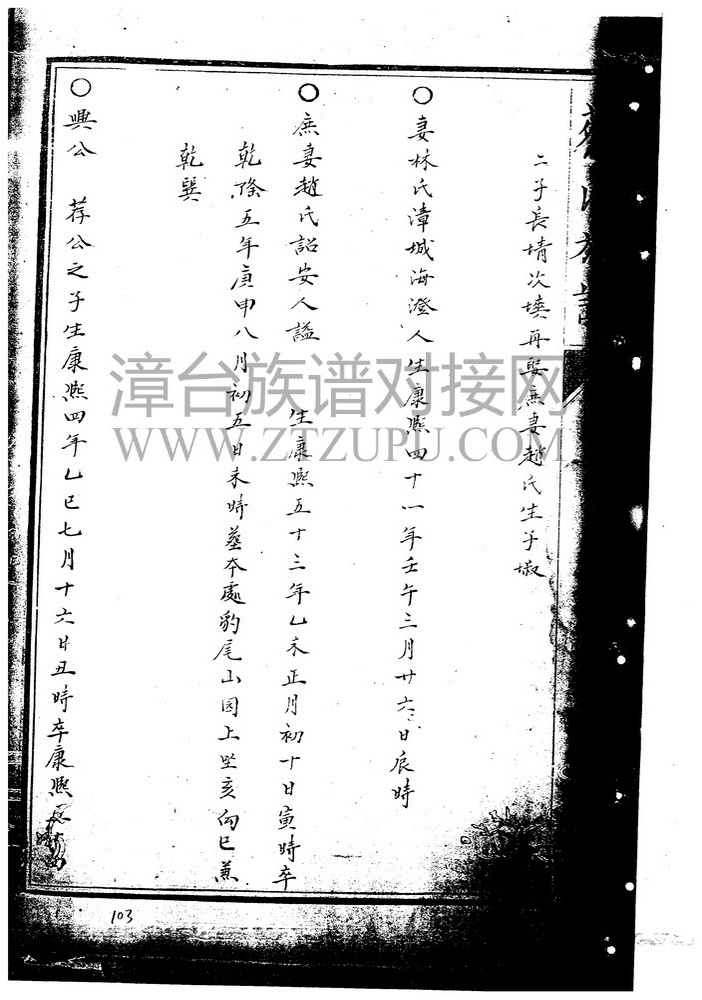 二子長堉次塽再娶庶妻趙氏生子埱
○妻林氏漳城海澄人生康熙四十一年壬午三月廿六日辰時
○庶妻趙氏詔安人謚 生康熙五十三年乙未正月初十日寅時卒
乾隆五年庚申八月初五日未時葬本處豹尾山园上坐亥向巳兼
乾巽
○興公 荐公之子生康熙四年乙巳七月十六日丑時卒康熙
漳台族谱对接网
WWW.ZTZUPU.COM
103